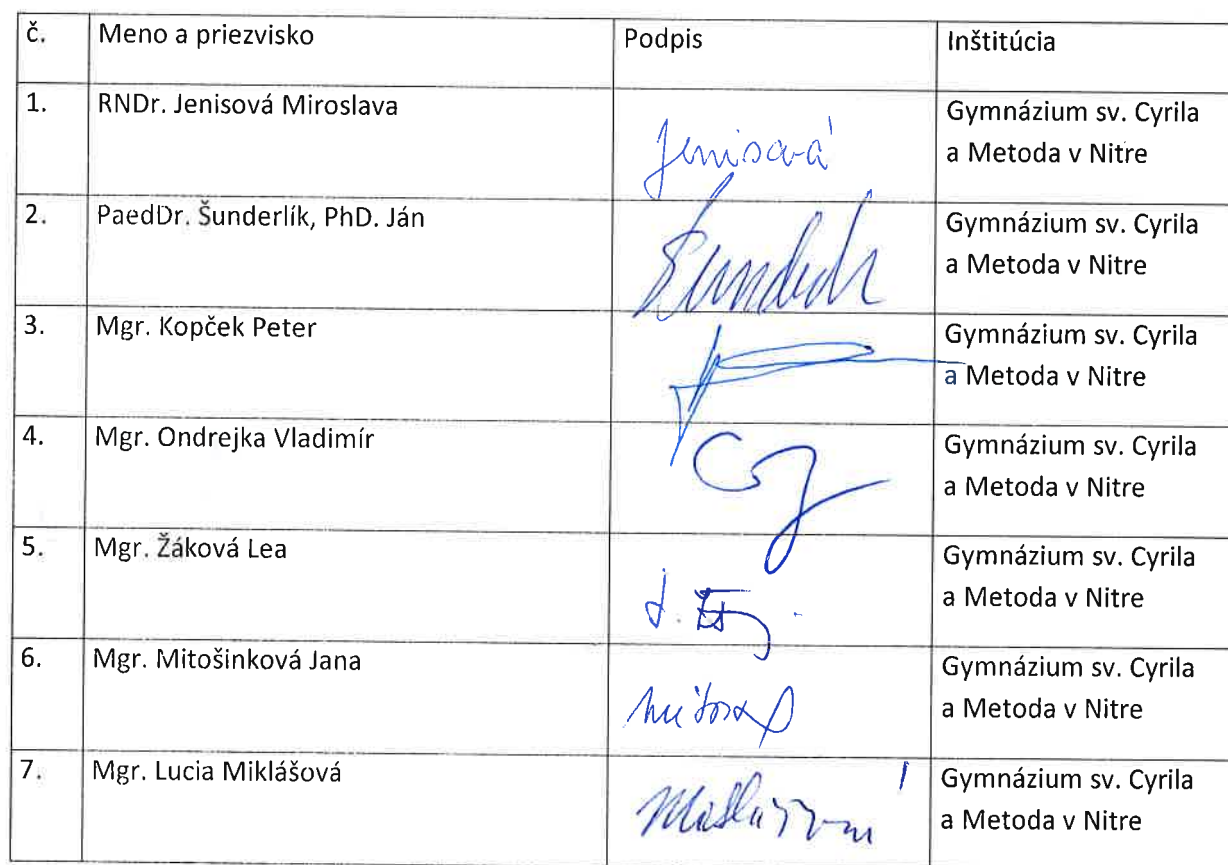 č. Meno a priezvisko Podpis Inštitúcia
1. RNDr. Jenisová Miroslava Jenisová Gymnázium sv. Cyrila
a Metoda v Nitre
2. PaedDr. Šunderlík, PhD. Ján Gymnázium sv. Cyrila
a Metoda v Nitre
3. Mgr. Kopček Peter Gymnázium sv. Cyrila
a Metoda v Nitre
4. Mgr. Ondrejka Vladimír Gymnázium sv. Cyrila
a Metoda v Nitre
5. Mgr. Žáková Lea Gymnázium sv. Cyrila
a Metoda v Nitre
6. Mgr. Mitošinková Jana Gymnázium sv. Cyrila
a Metoda v Nitre
7. Mgr. Lucia Miklášová Gymnázium sv. Cyrila
a Metoda v Nitre